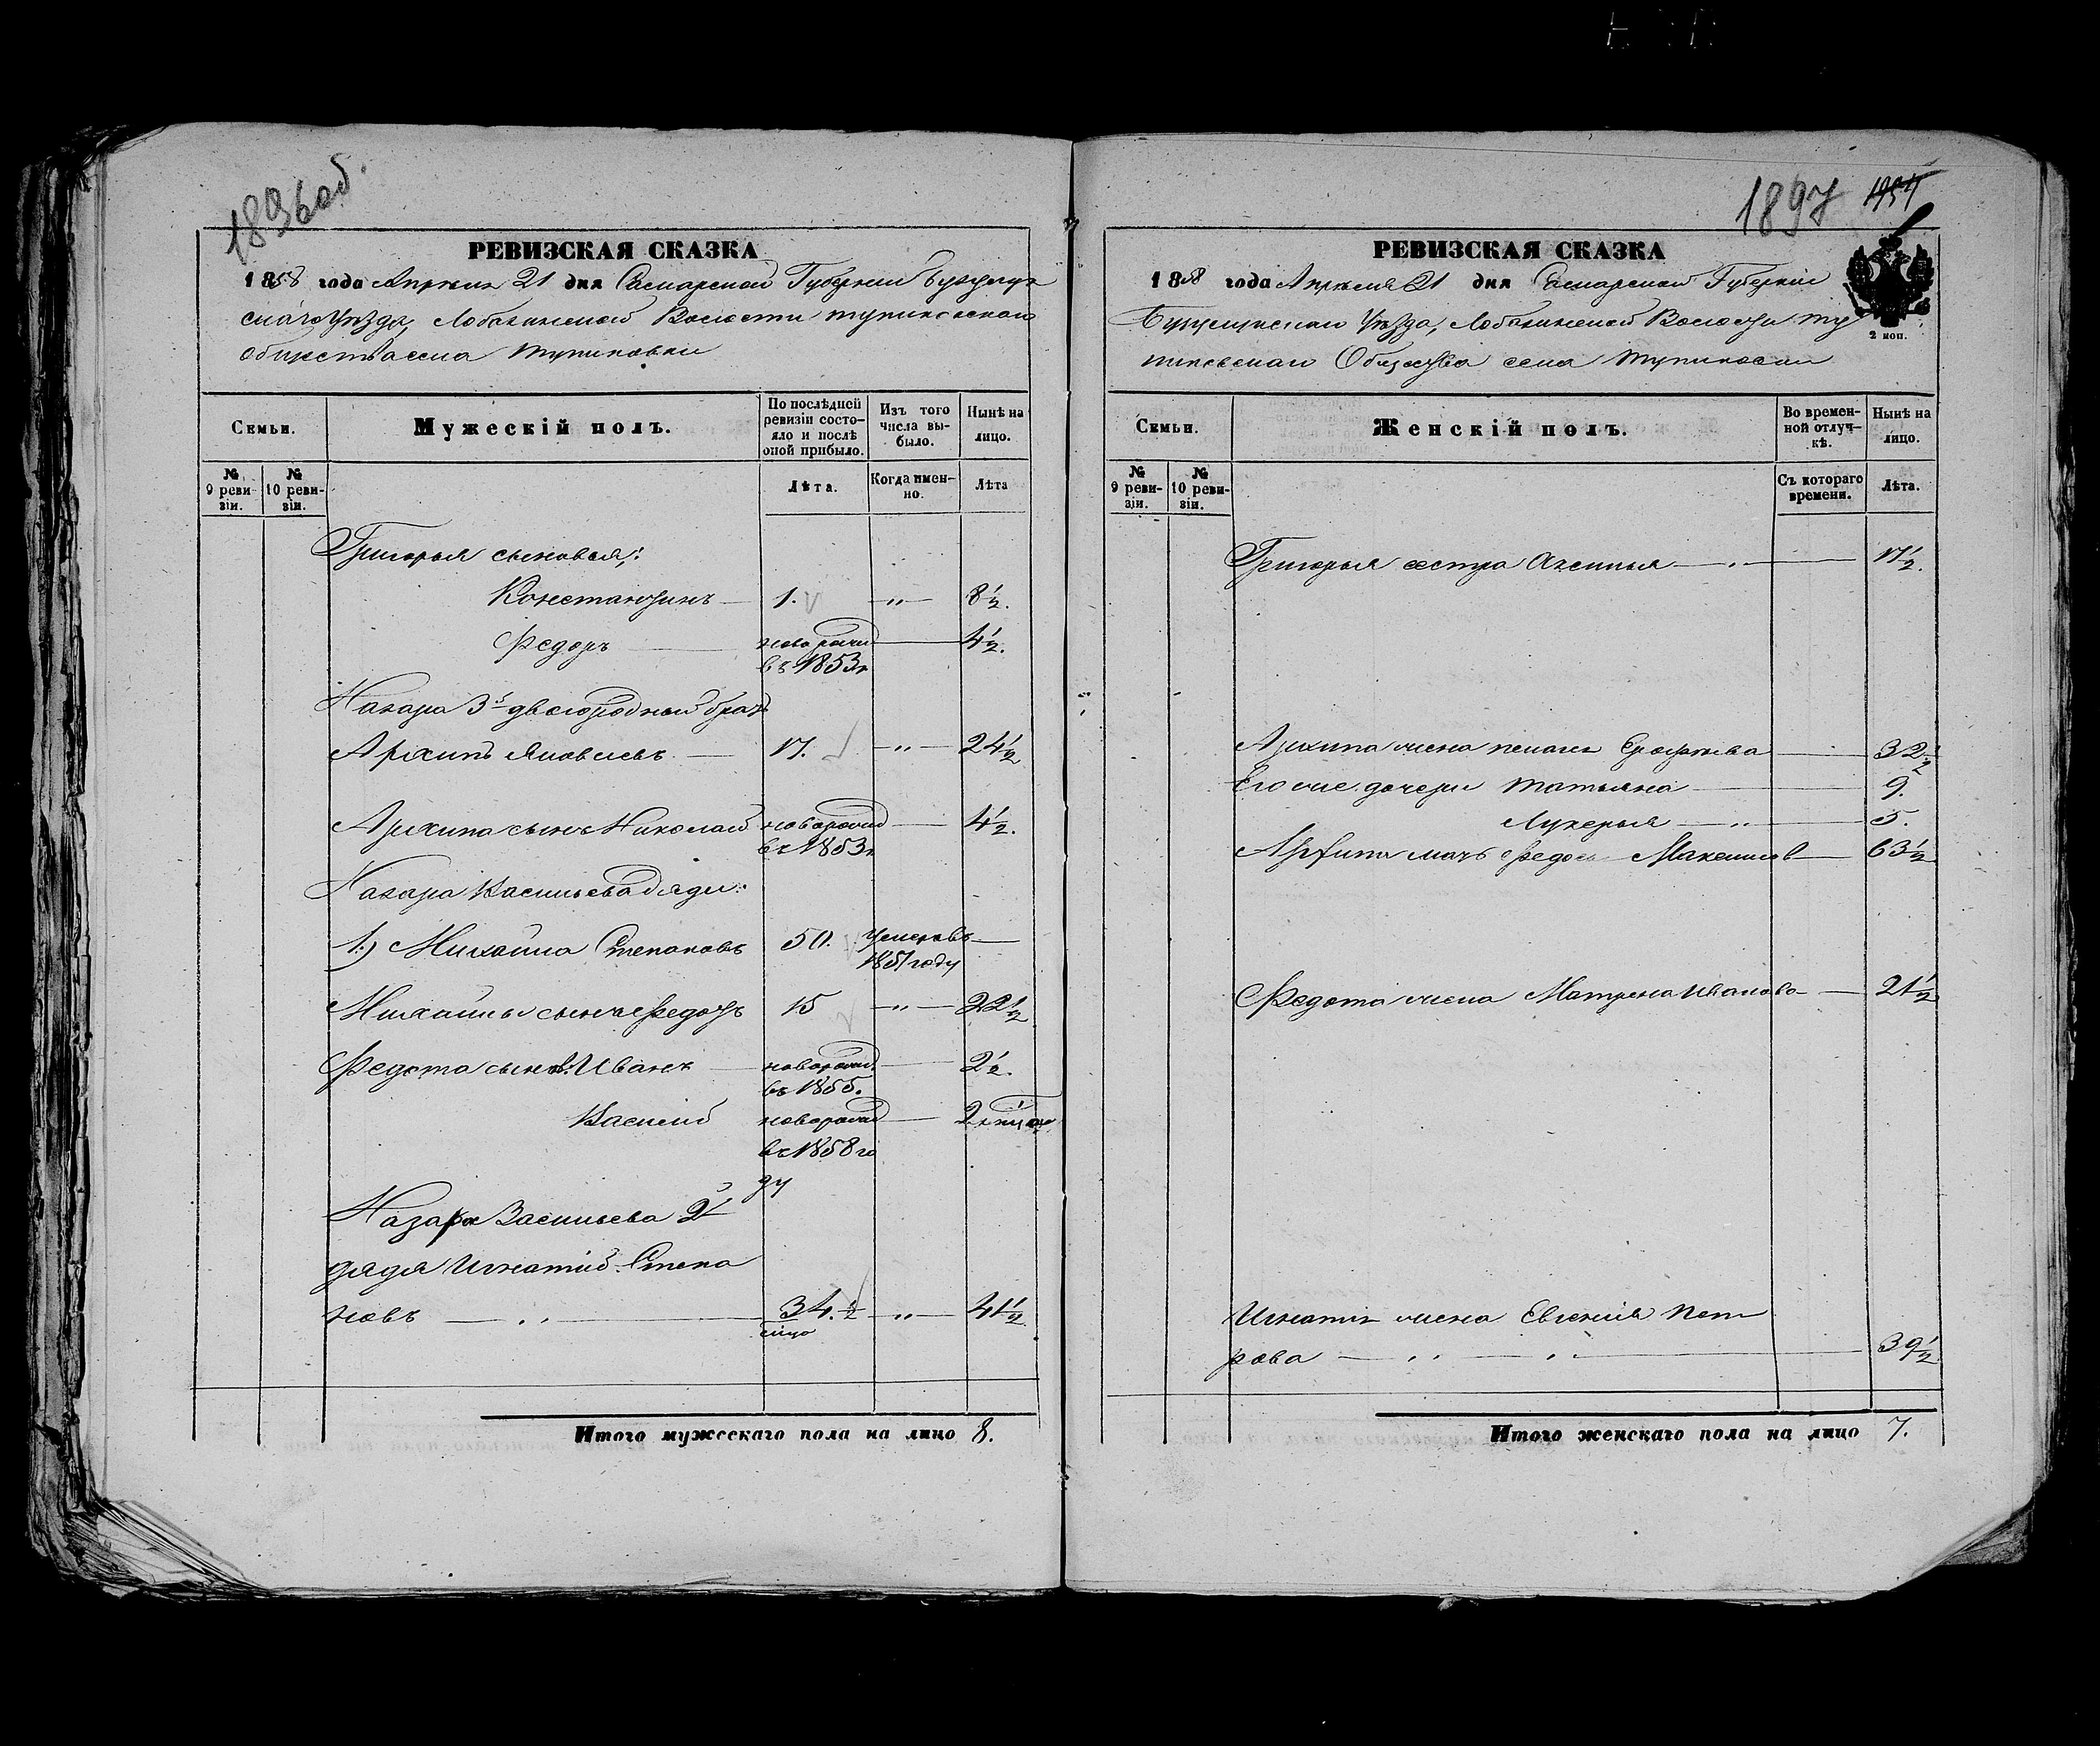 1896 об.
РЕВИЗСКАЯ СКАЗКА
1858 года Апреля 21 дня Самарской Губернии Бузулук
скаго Уѣзда, Лобазинской Волости Тупиковскаго
общества села Тупиковки
Семьи.
Мужескій полъ.
По послѣдней ревизіи состо-
яло и послѣ оной прибыло.
Изъ того числа вы-
было.
Нынѣ на лицо.
№ 9 реви-
зіи.
№ 10 реви-
зіи.
Лѣта.
Когда имен-
но.
Лѣта
Григорья сыновья:
Константинъ — 1. — „ — 8½.
Федоръ — новорожд — 4½.
въ 1853г
Назара 3й двоюродный братъ
Архипъ Яковлевъ — 17. — „ — 24½
Архипа сынъ Николай новорожд — 4½.
въ 1853г
Назара Васильева дяди:
1.) Михайла Степановъ 50. Умеръ въ —
1851 году
Михайлы сынъ Федотъ 15 — „ — 22½
Федота сынов. Иванъ — новорожд. — 2½.
въ 1855.
Василий новорожд —
въ 1858 го
ду
Назара Васильева 2й
дядя Игнатий Степа
новъ — „ — 34. — „ — 41½
Итого мужескаго пола на лицо 8.
1897
РЕВИЗСКАЯ СКАЗКА
1858 года Апреля 21 дня Самарской Губернии
Бузулукскаго Уѣзда, Лобазинской Волости Ту
пиковскаго Общества села Тупиковки
2 коп.
Семьи.
Женскій полъ.
Во времен-
ной отлуч-
кѣ.
Нынѣ на лицо.
№ 9 реви-
зіи.
№ 10 реви-
зіи.
Съ котораго времени.
Лѣта.
Григорья сестра Аксинья — „ — 17½.
Архипа жена Пелагея — 32½
Его же дочери Татьяна — 9.
Лукерья — „ — 5.
Архипа мать Федосья Максимов — 63½
Федота жена Матрена Иванова — 21½
Игнатия жена Евгения Пет
рова — „ — „ — 39½
Итого женскаго пола на лицо 7.